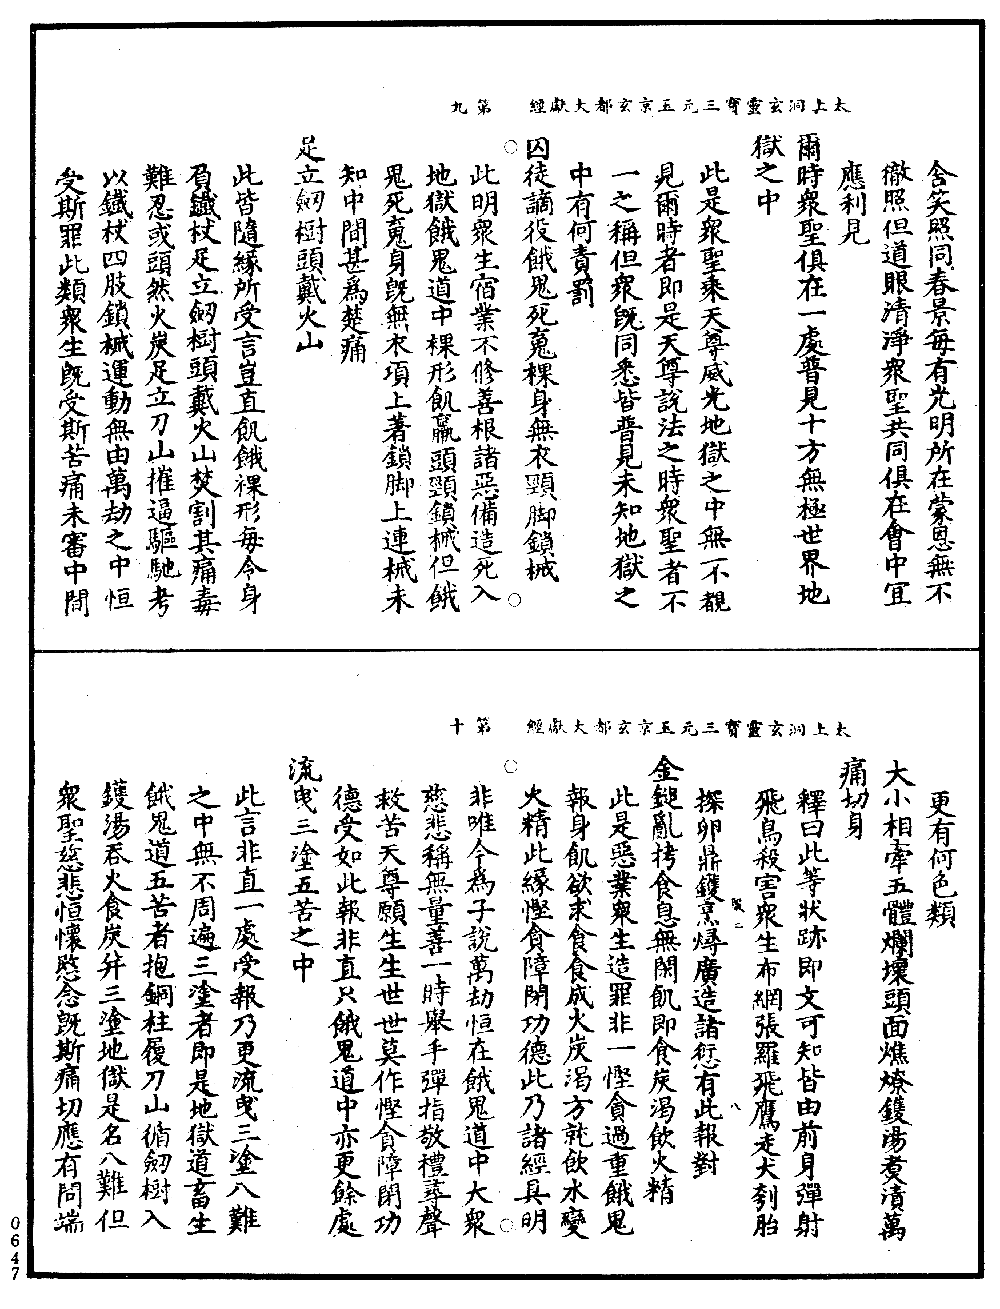 太上洞玄靈寶三元玉京玄都大獻經　第九
含笑照同春景每有光明所在蒙恩無不
徹照但道眼清淨衆聖共同俱在會中宜
應利見
爾時衆聖俱在一處普見十方無極世界地
獄之中
此是衆聖乘天尊威光地獄之中無一不覩
見爾時者即是天尊說法之時衆聖者不
一之稱但衆旣同悉皆普見未知地獄之
中有何責罰
囚徒謫役餓鬼死䰟裸身無衣頸脚鎖械
此明衆生宿業不修善根諸惡備造死入
地獄餓鬼道中裸形飢羸頭頸鎖械但餓
鬼死䰟身旣無衣項上著鎖脚上連械未
知中間甚爲楚痛
足立劒樹頭戴火山
此皆隨緣所受言豈直飢餓裸形每令身
負鐵杖足立劒樹頭戴火山焚割其痛毒
難忍或頭然火炭足立刀山摧逼驅馳考
以鐵杖四肢鎖械運動無由萬劫之中恒
受斯罪此類衆生旣受斯苦痛未審中間
太上洞玄靈寶三元玉京玄都大獻經　第十
更有何色類
大小相牽五體爛壞頭面燋燎鑊湯煑漬萬
痛切身
釋曰此等狀跡即文可知皆由前身彈射
飛鳥殺害衆生布網張羅飛鷹走犬刳胎
探卵鼎鑊烹燖廣造諸愆有此報對
金鎚亂拷食息無閑飢即食炭渴飲火精
此是惡業衆生造罪非一慳貪過重餓鬼
報身飢欲求食食成火炭渴方就飲水變
火精此緣慳貪障閉功德此乃諸經具明
非唯今爲子說萬劫恒在餓鬼道中大衆
慈悲稱無量善一時舉手彈指敬禮尋聲
救苦天尊願生生世世莫作慳貪障閉功
德受如此報非直只餓鬼道中亦更餘處
流曳三塗五苦之中
此言非直一處受報乃更流曳三塗八難
之中無不周遍三塗者即是地獄道畜生
餓鬼道五苦者抱銅柱履刀山循劒樹入
鑊湯吞火食炭并三塗地獄是名八難但
衆聖慈悲恒懷愍念旣斯痛切應有問端
0647